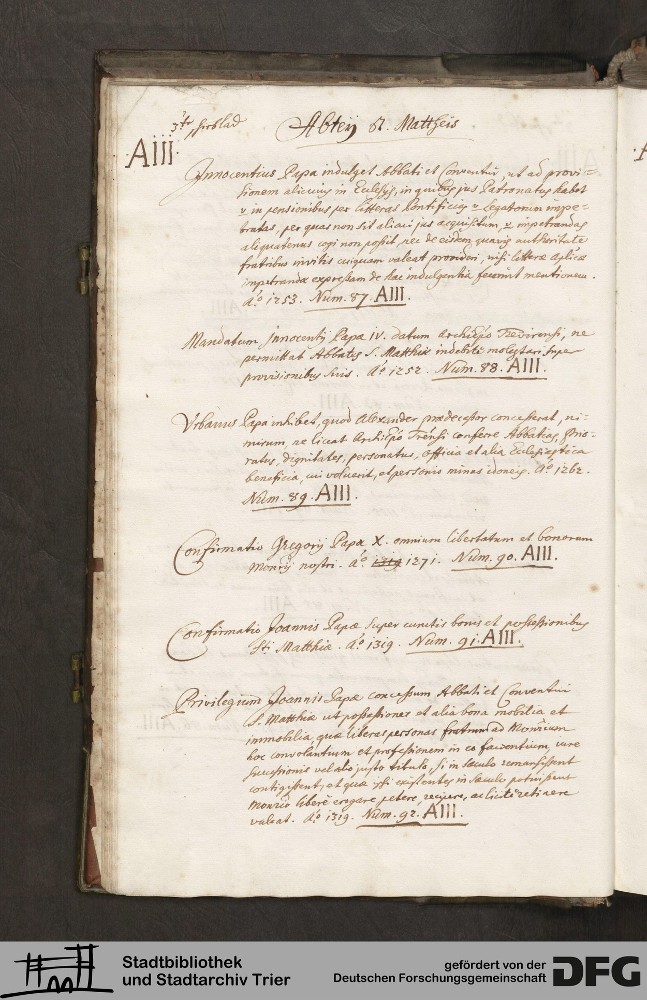 3te schoblad Abteÿ St. Mattheis
AIII.
Innocentius Papa indulget Abbati et Conventui, ut ad provi=
sionem alicuius in Ecclesÿs, in quibus jus Patronatus habet
& in pensionibus per litteras Pontificias & Legatorum impe=
tratas, per quas non sit alicui jus acquisitum, & impetrandas
aliquatenus cogi non possit, nec de eisdem quavis authoritate
fratribus invitis cuiquam valeat provideri, nisi litteræ aplicæ
impetrandæ expressam de hac indulgentia fecerint mentionem.
Aº 1253. Num. 87. AIII.
Mandatum Innocentÿ Papæ IV. datum Archiepo Trevirensi, ne
permittat Abbates S. Matthiæ indebite molestari super
provisionibus suis. Aº 1252. Num. 88. AIII.
Urbanus Papa inhibet, quod Alexander prædecessor concesserat, ni=
mirum, ne liceat Archiepo Trensi conferre Abbatias, Prio=
ratus, dignitates, personatus, officia et alia Ecclesiastica
beneficia, cui voluerit, et personis minus idoneis. Aº 1262.
Num. 89. AIII.
Confirmatio Gregorÿ Papæ X. omnium libertatum et bonorum
Monrÿ nostri. Aº 1319 1271. Num. 90. AIII.
Confirmatio Joannis Papæ super cunctis bonis et possessionibus
Sti Matthiæ. Aº 1319. Num. 91. AIII.
Privilegium Joannis Papæ concessum Abbati et Conventui
S. Matthiæ ut possessiones et alia bona mobilia et
immobilia, quæ liberas personas fratrum ad Monrium
hoc convolantium et professionem in eo facientium, jure
successionis vel alio justo titulo, si in sæculo remansissent
contigissent, et quæ ipsi existentes in sæculo potuissent
Monrio libere erogare petere, recipere, ac licite retinere
valeat. Aº 1319. Num. 92. AIII.
Stadtbibliothek
und Stadtarchiv Trier
gefördert von der
Deutschen Forschungsgemeinschaft
DFG